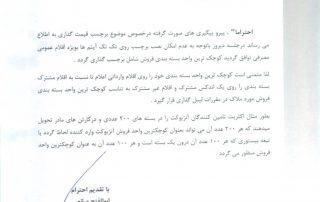 احتراما" ، پیرو پیگیری های صورت گرفته درخصوص موضوع برچسب قیمت گذاری به اطلاع
می رساند درجلسه دیروز باتوجه به عدم امکان نصب برچسب روی تک تک آیتم ها بویژه اقلام عمومی
مصرفی توافق گردید کوچک ترین واحد بسته بندی فروش شامل برچسب گذاری گردد .
لذا متمنی است کوچک ترین واحد بسته بندی خود را روی اقلام وارداتی اعلام تا نسبت به اقلام مشترک
بسته بندی روی یک اندکس مشترک و اقلام غیر مشترک به تناسب کوچک ترین واحد
فروش مورد ملاک در مقررات لیبل گذاری قرار گیرد .
بطور مثال اکثریت تامین کنندگان آنژیوکت را در بسته های ۲۰۰ عددی و درکارتن های مادر تحویل
میدهند که هر ۲۰۰ عدد آن می تواند بعنوان کوچکترین واحد فروش آنژیوکت وارد کننده لحاظ گردد یا
تیغه بیستوری که هر ۱۰۰ عدد آن درون یک بسته است و هر ۱۰۰ عدد آن به عنوان کوچکترین واحد
فروش منظور می گردد
با تقدیم احترام